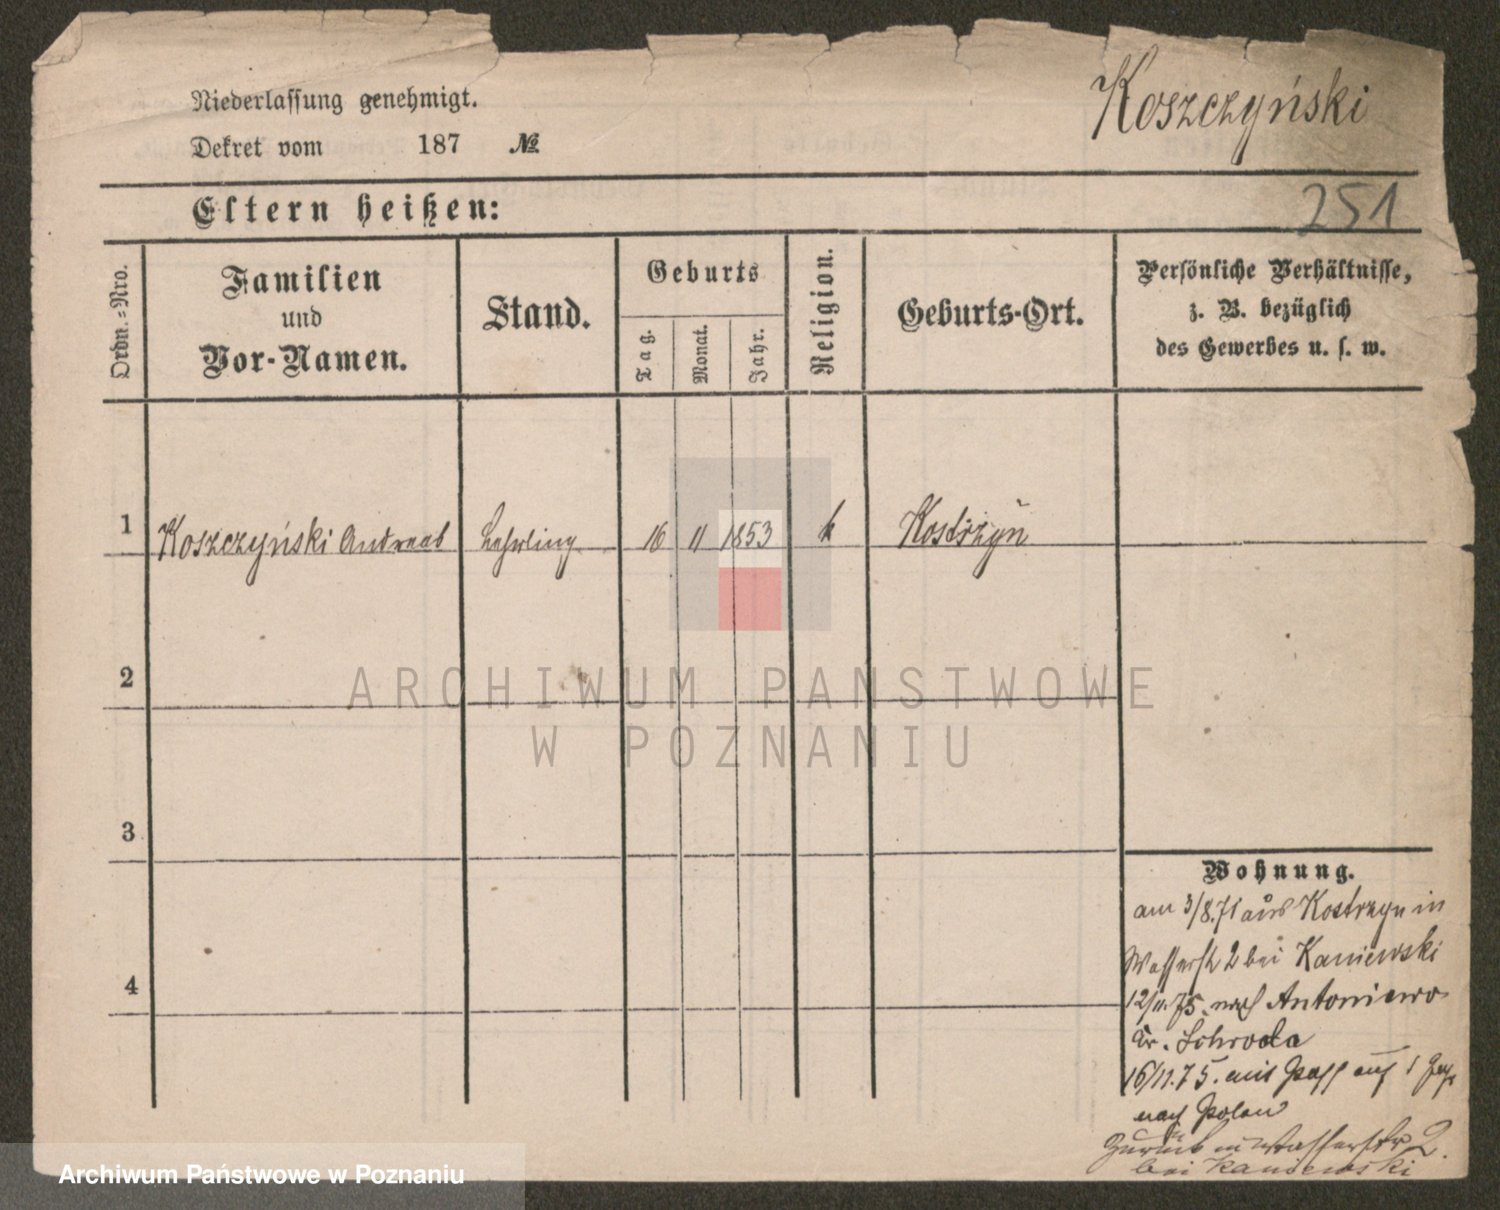 Niederlassung genehmigt.
Koszczyński
Dekret vom 187 №
Eltern heißen:
251
Ordn.=Nro.
Familien
und
Vor-Namen.
Stand.
Geburts
Tag.
Monat.
Jahr.
Religion.
Geburts-Ort.
Persönliche Verhältnisse,
z. B. bezüglich
des Gewerbes u. s. w.
1 Koszczyński Andreas Lehrling 16 11 1853 k Kostrzyn
2
ARCHIWUM PAŃSTWOWE
W POZNANIU
3
4
Wohnung.
am 3/8.71 aus Kostrzyn in
Wasserstr 2 bei Kaniewski
12/11.75. nach Antoniewo
Kr. Schroda
16/11.75. mit Pass auf 1 Jahr
nach Polen
Zurück in Wasserstr 2.
bei Kaniewski
Archiwum Państwowe w Poznaniu